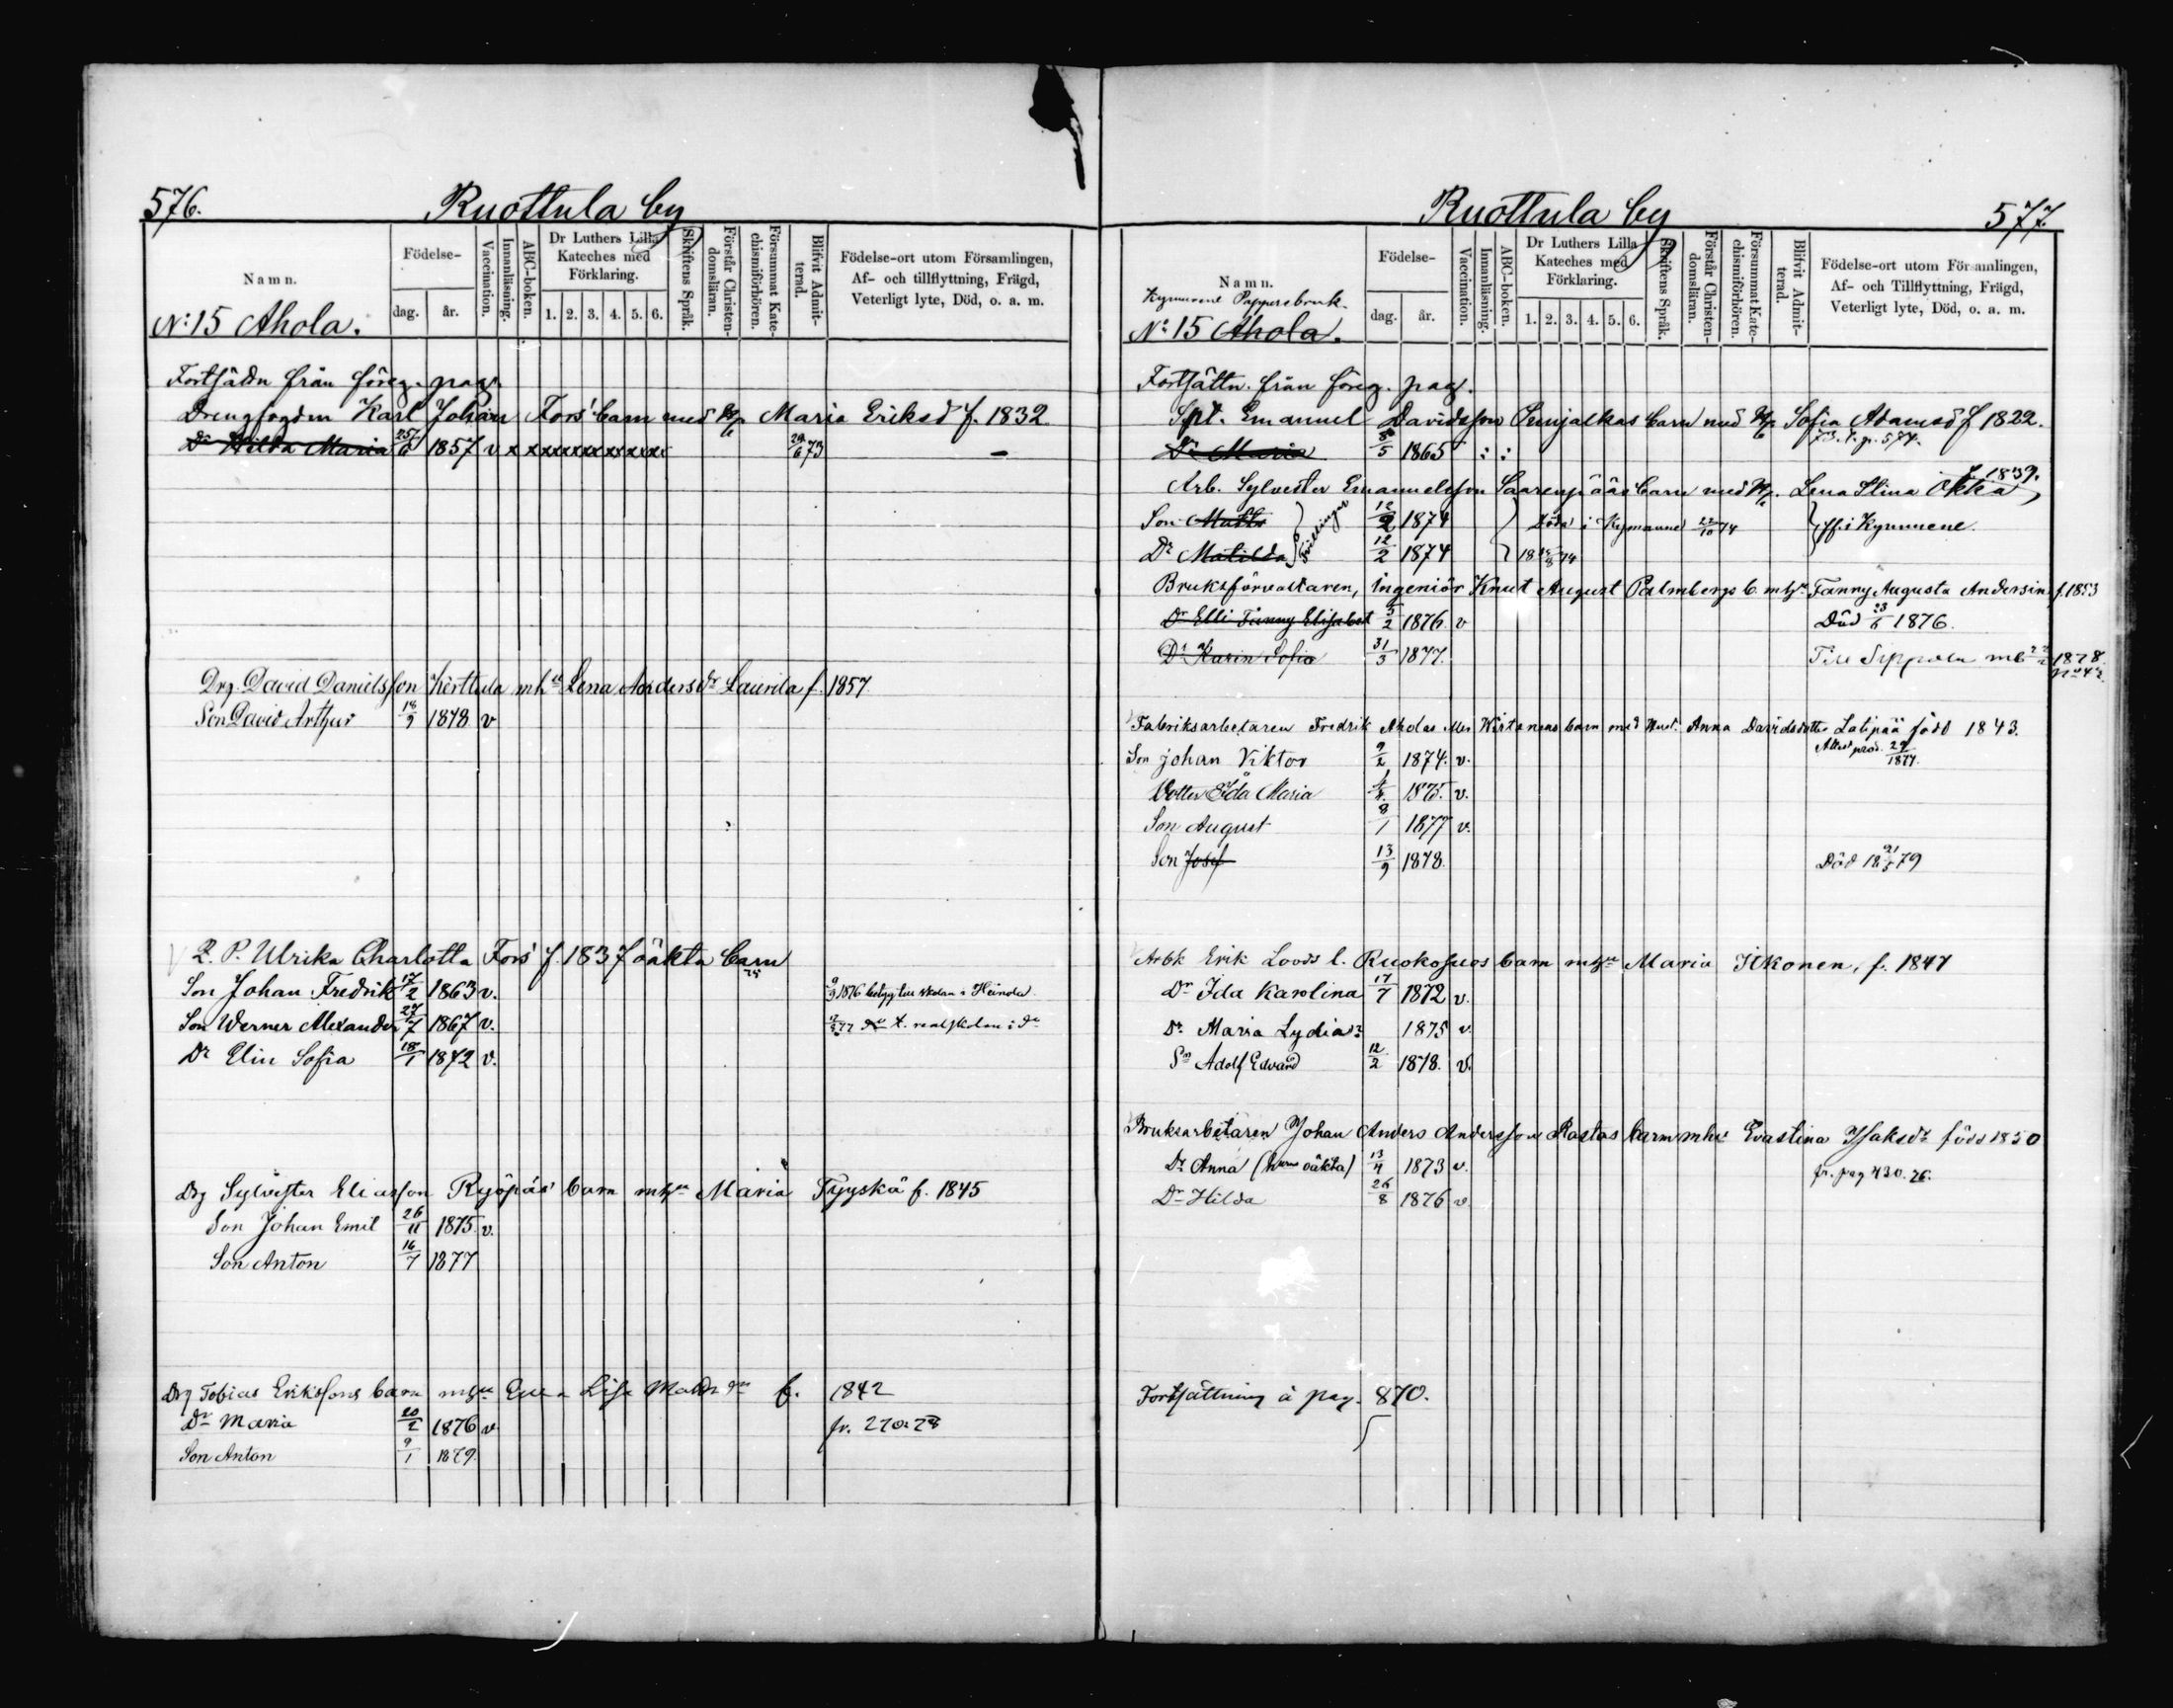 576.
Ruottula by
Namn.
Födelse-
dag.
år.
Vaccination.
Innanläsning.
ABC-boken.
Dr Luthers Lilla
Kateches med
Förklaring.
1. 2. 3. 4. 5. 6.
Skriftens Språk.
Förstår Christen-
domsläran.
Försummat Kate-
chismiförhören.
Blifvit Admit-
terad.
Födelse-ort utom Församlingen,
Af- och tillflyttning, Frägd,
Veterligt lyte, Död, o. a. m.
No 15 Ahola.
från föreg. pag.
Karl Johan Fors' barn med Maria Eriksd f. 1832
Dr Hilda Maria 25/6 1857 v x xxxxxxxxxxx 29/6 73 –
Drg. David Danielsson Kerttula mh Lena Andersdr Laurila f. 1857
Son David Arthur 18/9 1878 v
Q. P. Ulrika Charlotta Fors' f. 1837 oäkta barn
Son Johan Fredrik 17/2 1863 v. 9/9 1876 skolan i Heinola
Son Werner Alexander 27/7 1867 v. realskolan i do
Dr Elin Sofia 18/1 1872 v.
Drg Sylvester Eliasson Ryöpäs' barn mhu Maria Tyyskä f. 1845
Son Johan Emil 26/11 1875 v.
Son Anton 16/7 1877
Drg Tobias Erikssons barn mhu Eva Lisa f. 1842
Dr Maria 20/2 1876 v fr. 270 a 78
Son Anton 9/1 1879.
Ruottula by
577.
Namn.
Kymmene Pappersbruk.
No 15 Ahola.
Födelse-
dag.
år.
Vaccination.
Innanläsning.
ABC-boken.
Dr Luthers Lilla
Kateches med
Förklaring.
1. 2. 3. 4. 5. 6.
Skriftens Språk.
Förstår Christen-
domsläran.
Försummat Kate-
chismiförhören.
Blifvit Admit-
terad.
Födelse-ort utom Församlingen,
Af- och Tillflyttning, Frägd,
Veterligt lyte, Död, o. a. m.
Fortsättn. från föreg. pag.
Spt. Emanuel Davidsson barn med Sofia Adamsd f 1822.
Dr Maria 8/5 1865 : : p. 574.
Arb. Sylvester Emanuelsson Saarenpääs barn med Lena Stina Okka f. 1839.
Son Matts Tvillingar 12/2 1874 Döda i Kymmene 22/10 74 i Kymmene.
Dr Matilda 12/2 1874
Bruksförvaltaren, Ingeniör Knut August Palmbergs b. mhu Fanny Augusta Andersin f. 1853
Dr Elli Fanny Elisabet 5/2 1876 v Död 23/6 1876.
Dr Karin Sofia 31/3 1877. Till Sippola mb 1878
Fabriksarbetaren Fredrik Wirtanens barn med Hust. Anna Davidsdotter Latipää född 1843.
Son Johan Viktor 9/2 1874. v. 1877.
Dotter Ida Maria 1875. v.
Son August 8/1 1877 v.
Son Josef 13/9 1878. Död 18 21/5 79
Arbk Erik Loods l. Ruokosuos barn mhu Maria Itkonen, f. 1847
Dr Ida Karolina 17/7 1872 v.
Dr Maria Lydia 1875 v
Sn Adolf Edvard 12/2 1878. v.
Bruksarbetaren Johan Anders Andersson Rastas barn mhu Evastina Isaksdr född 1850
Dr Anna (hennes oäkta) 13/4 1873 v. fr. pag 430. 76.
Dr Hilda 26/8 1876 v
Fortsättning å pag. 870.